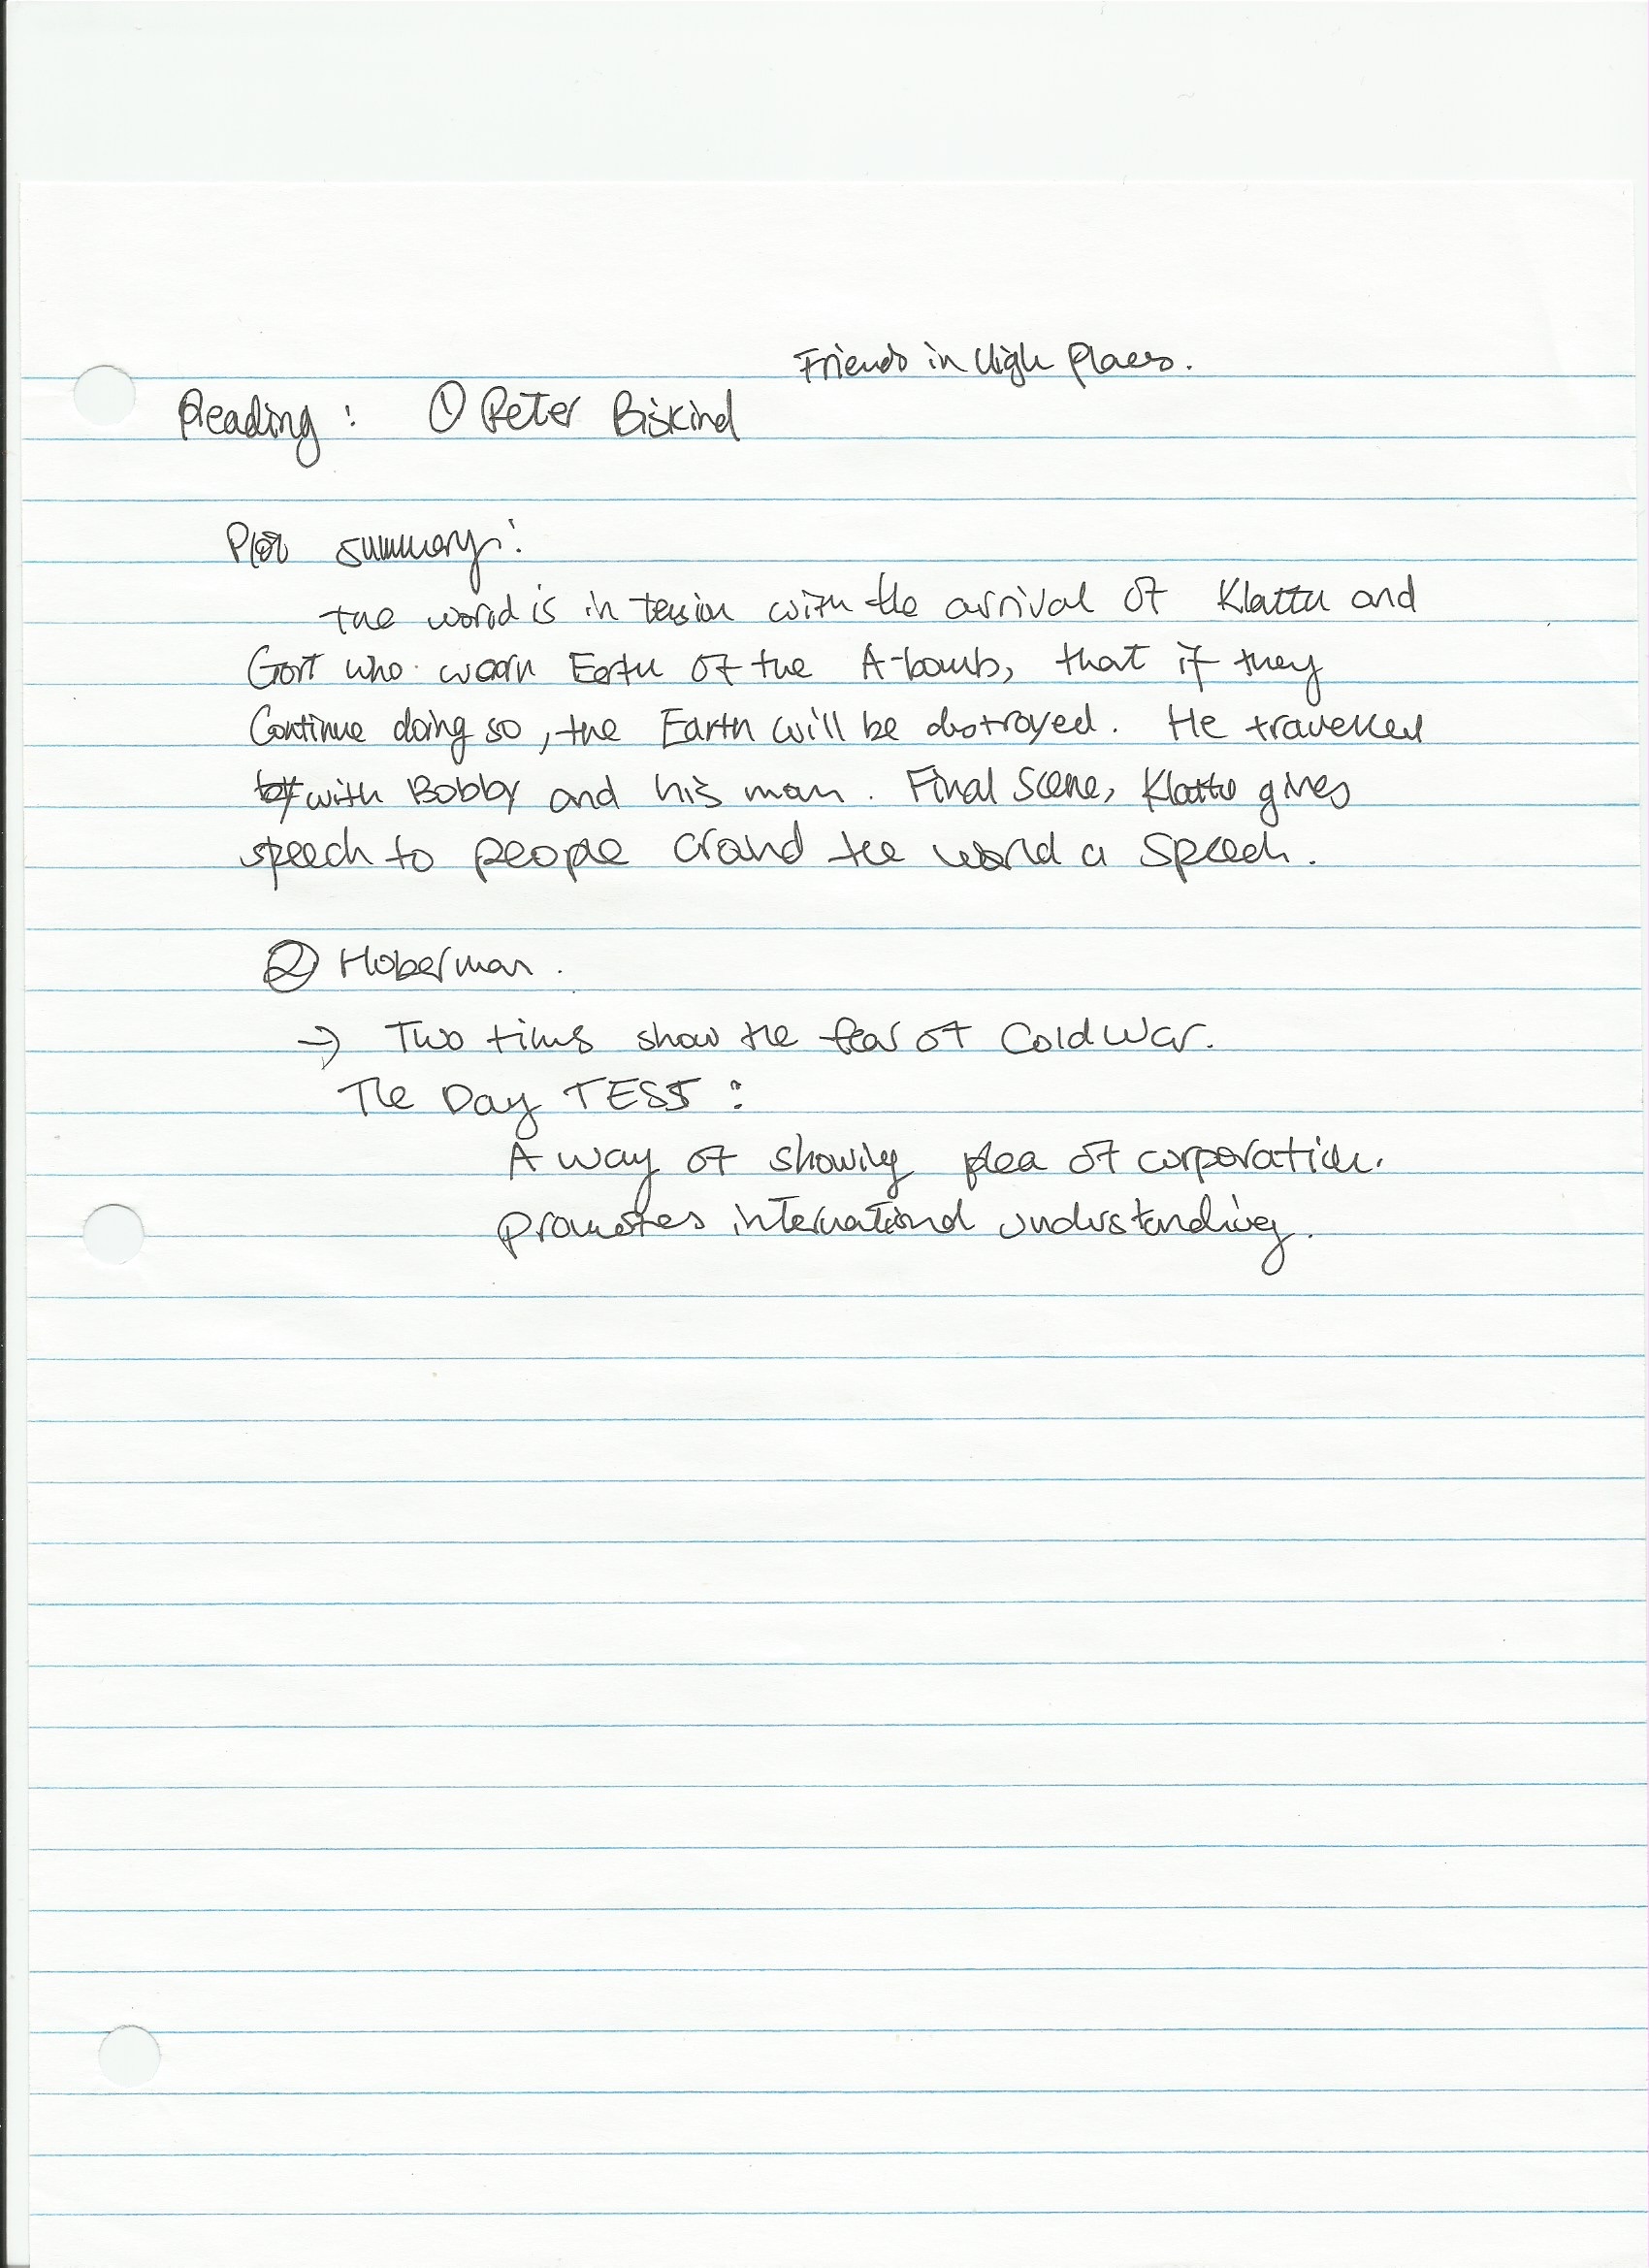 Friends in High Places.
Reading: ① Peter Biskind
Plot summary:
The world is in tension with the arrival of Klattu and
Gort who warn Earth of the A-bomb, that if they
Continue doing so, the Earth will be destroyed. He travelled
with Bobby and his mom. Final Scene, Klattu gives
speech to people around the world a speech.
② Hoberman.
→ Two films show the fear of Cold War.
The Day TESS:
A way of showing plea of corporation.
promotes international understanding.